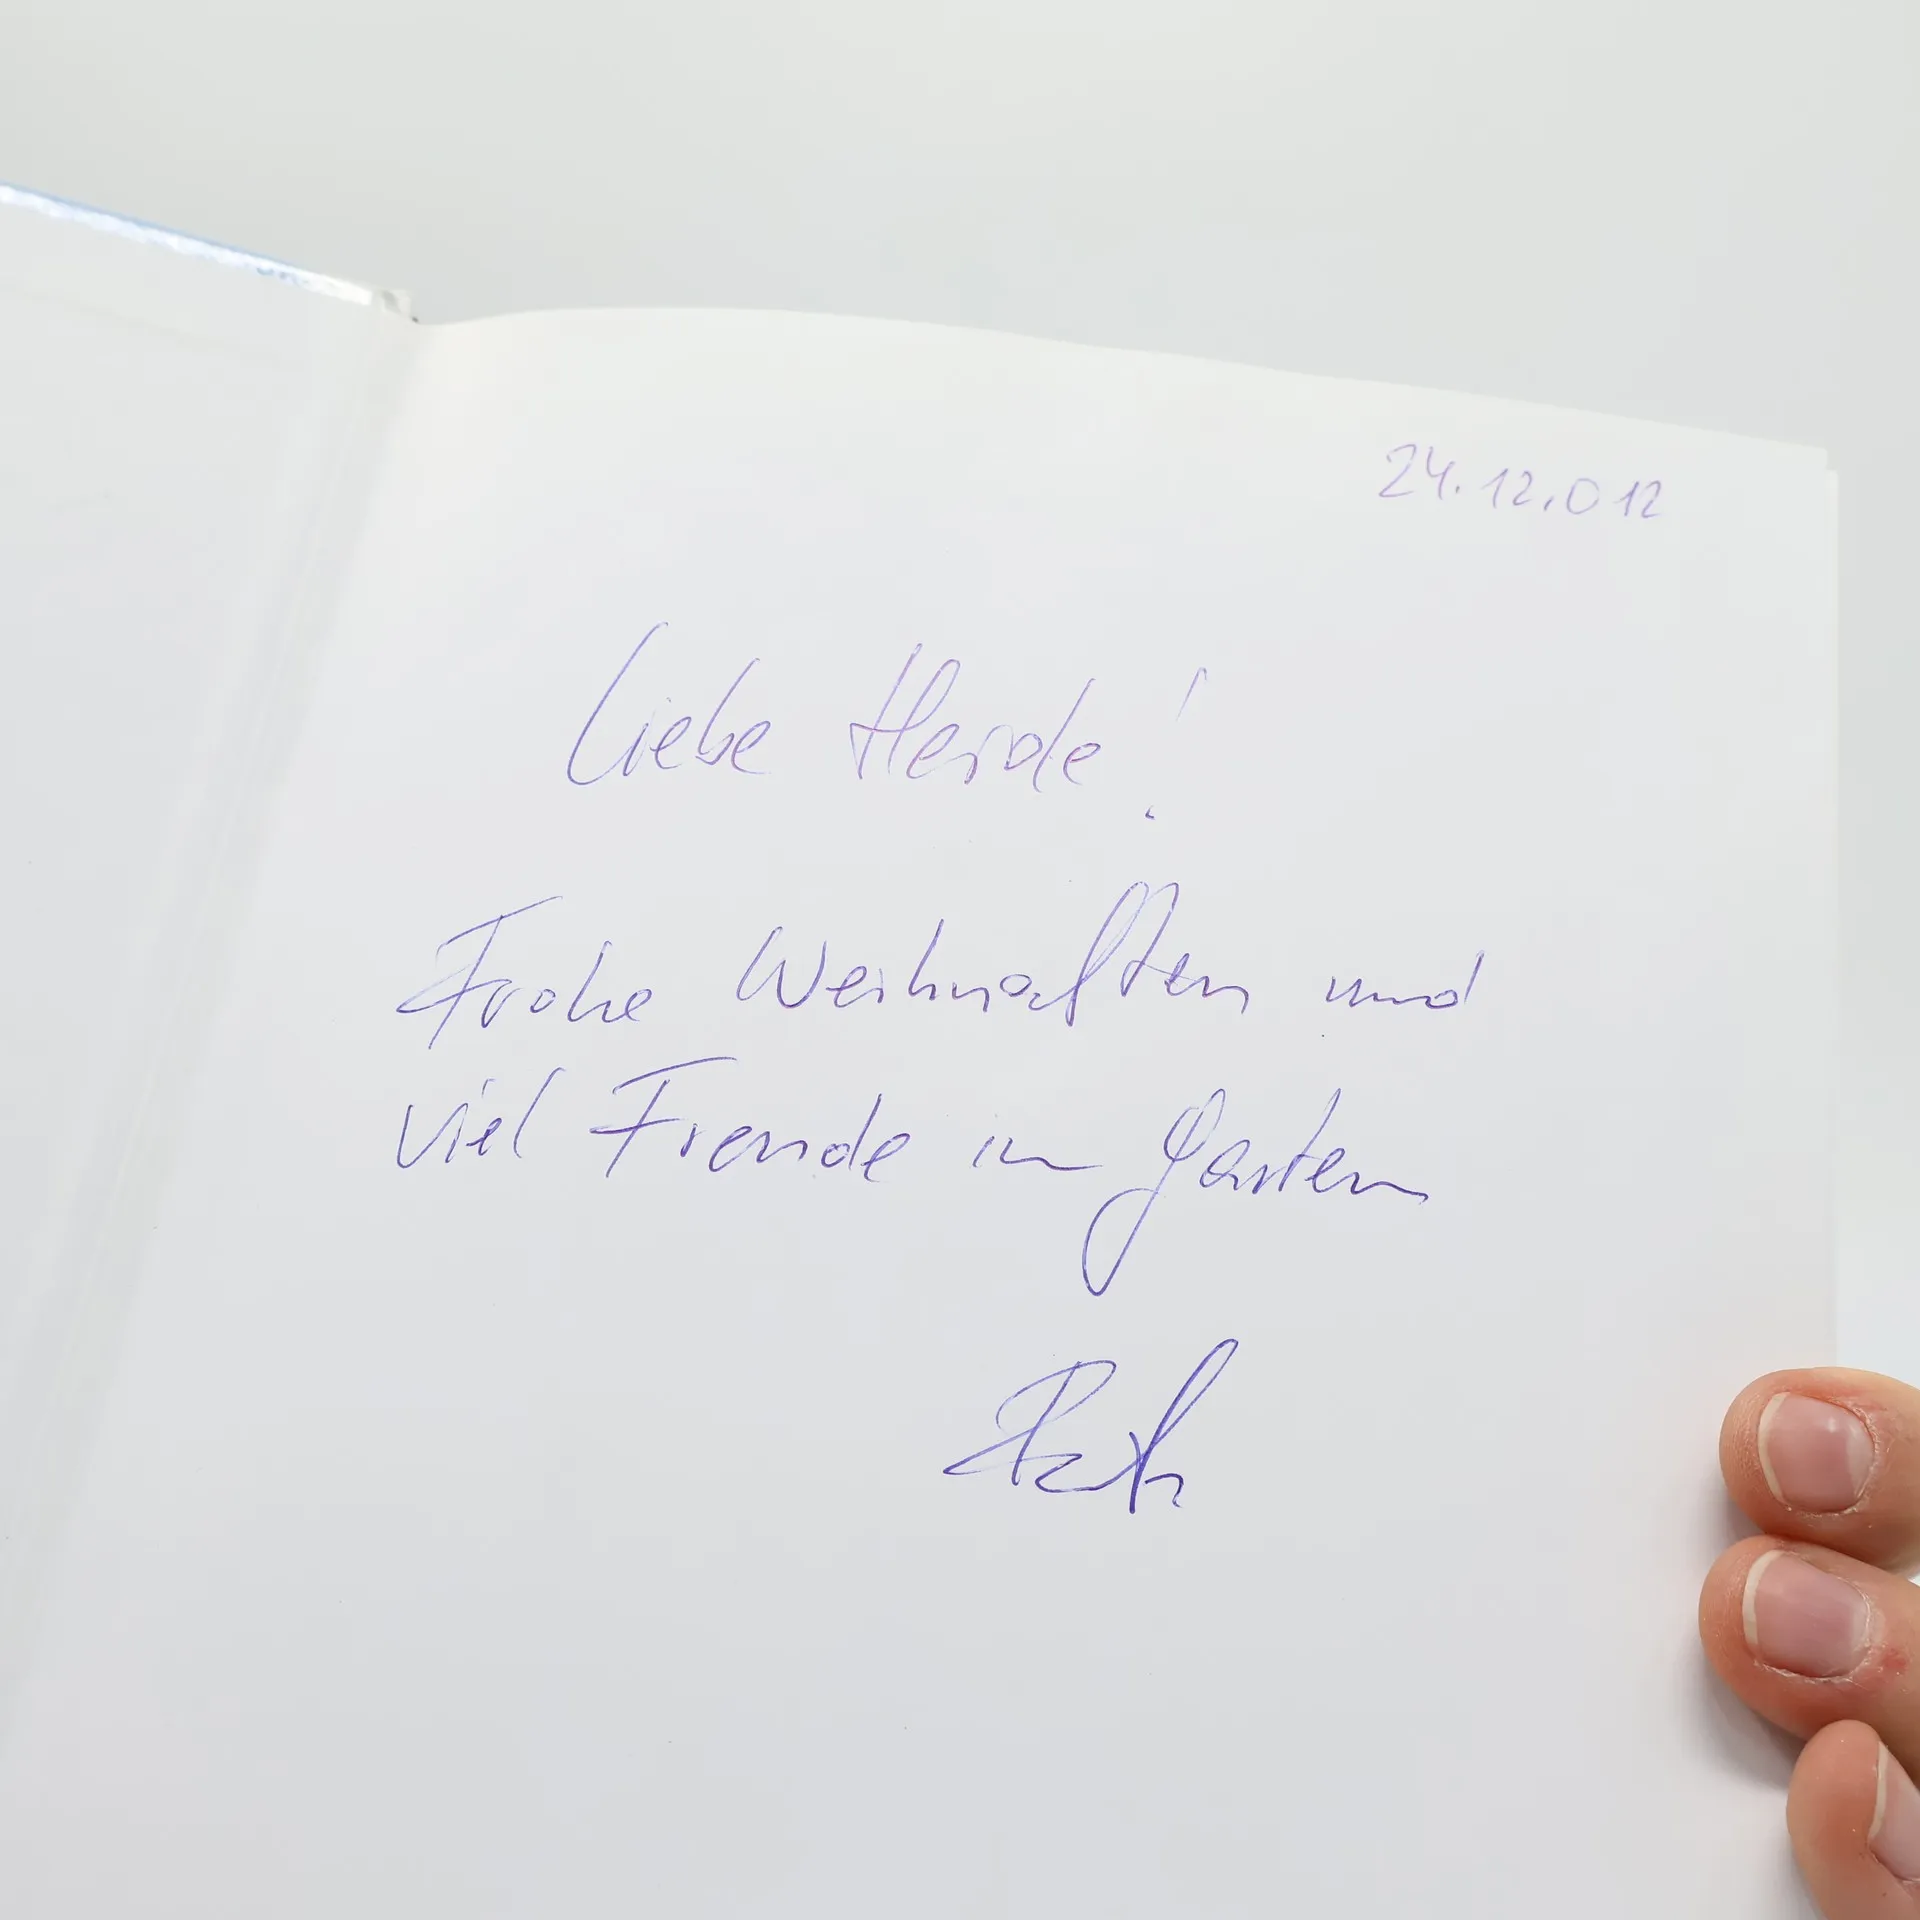 24.12.012
Liebe Heide!
Frohe Weihnachten und
viel Freude im Garten